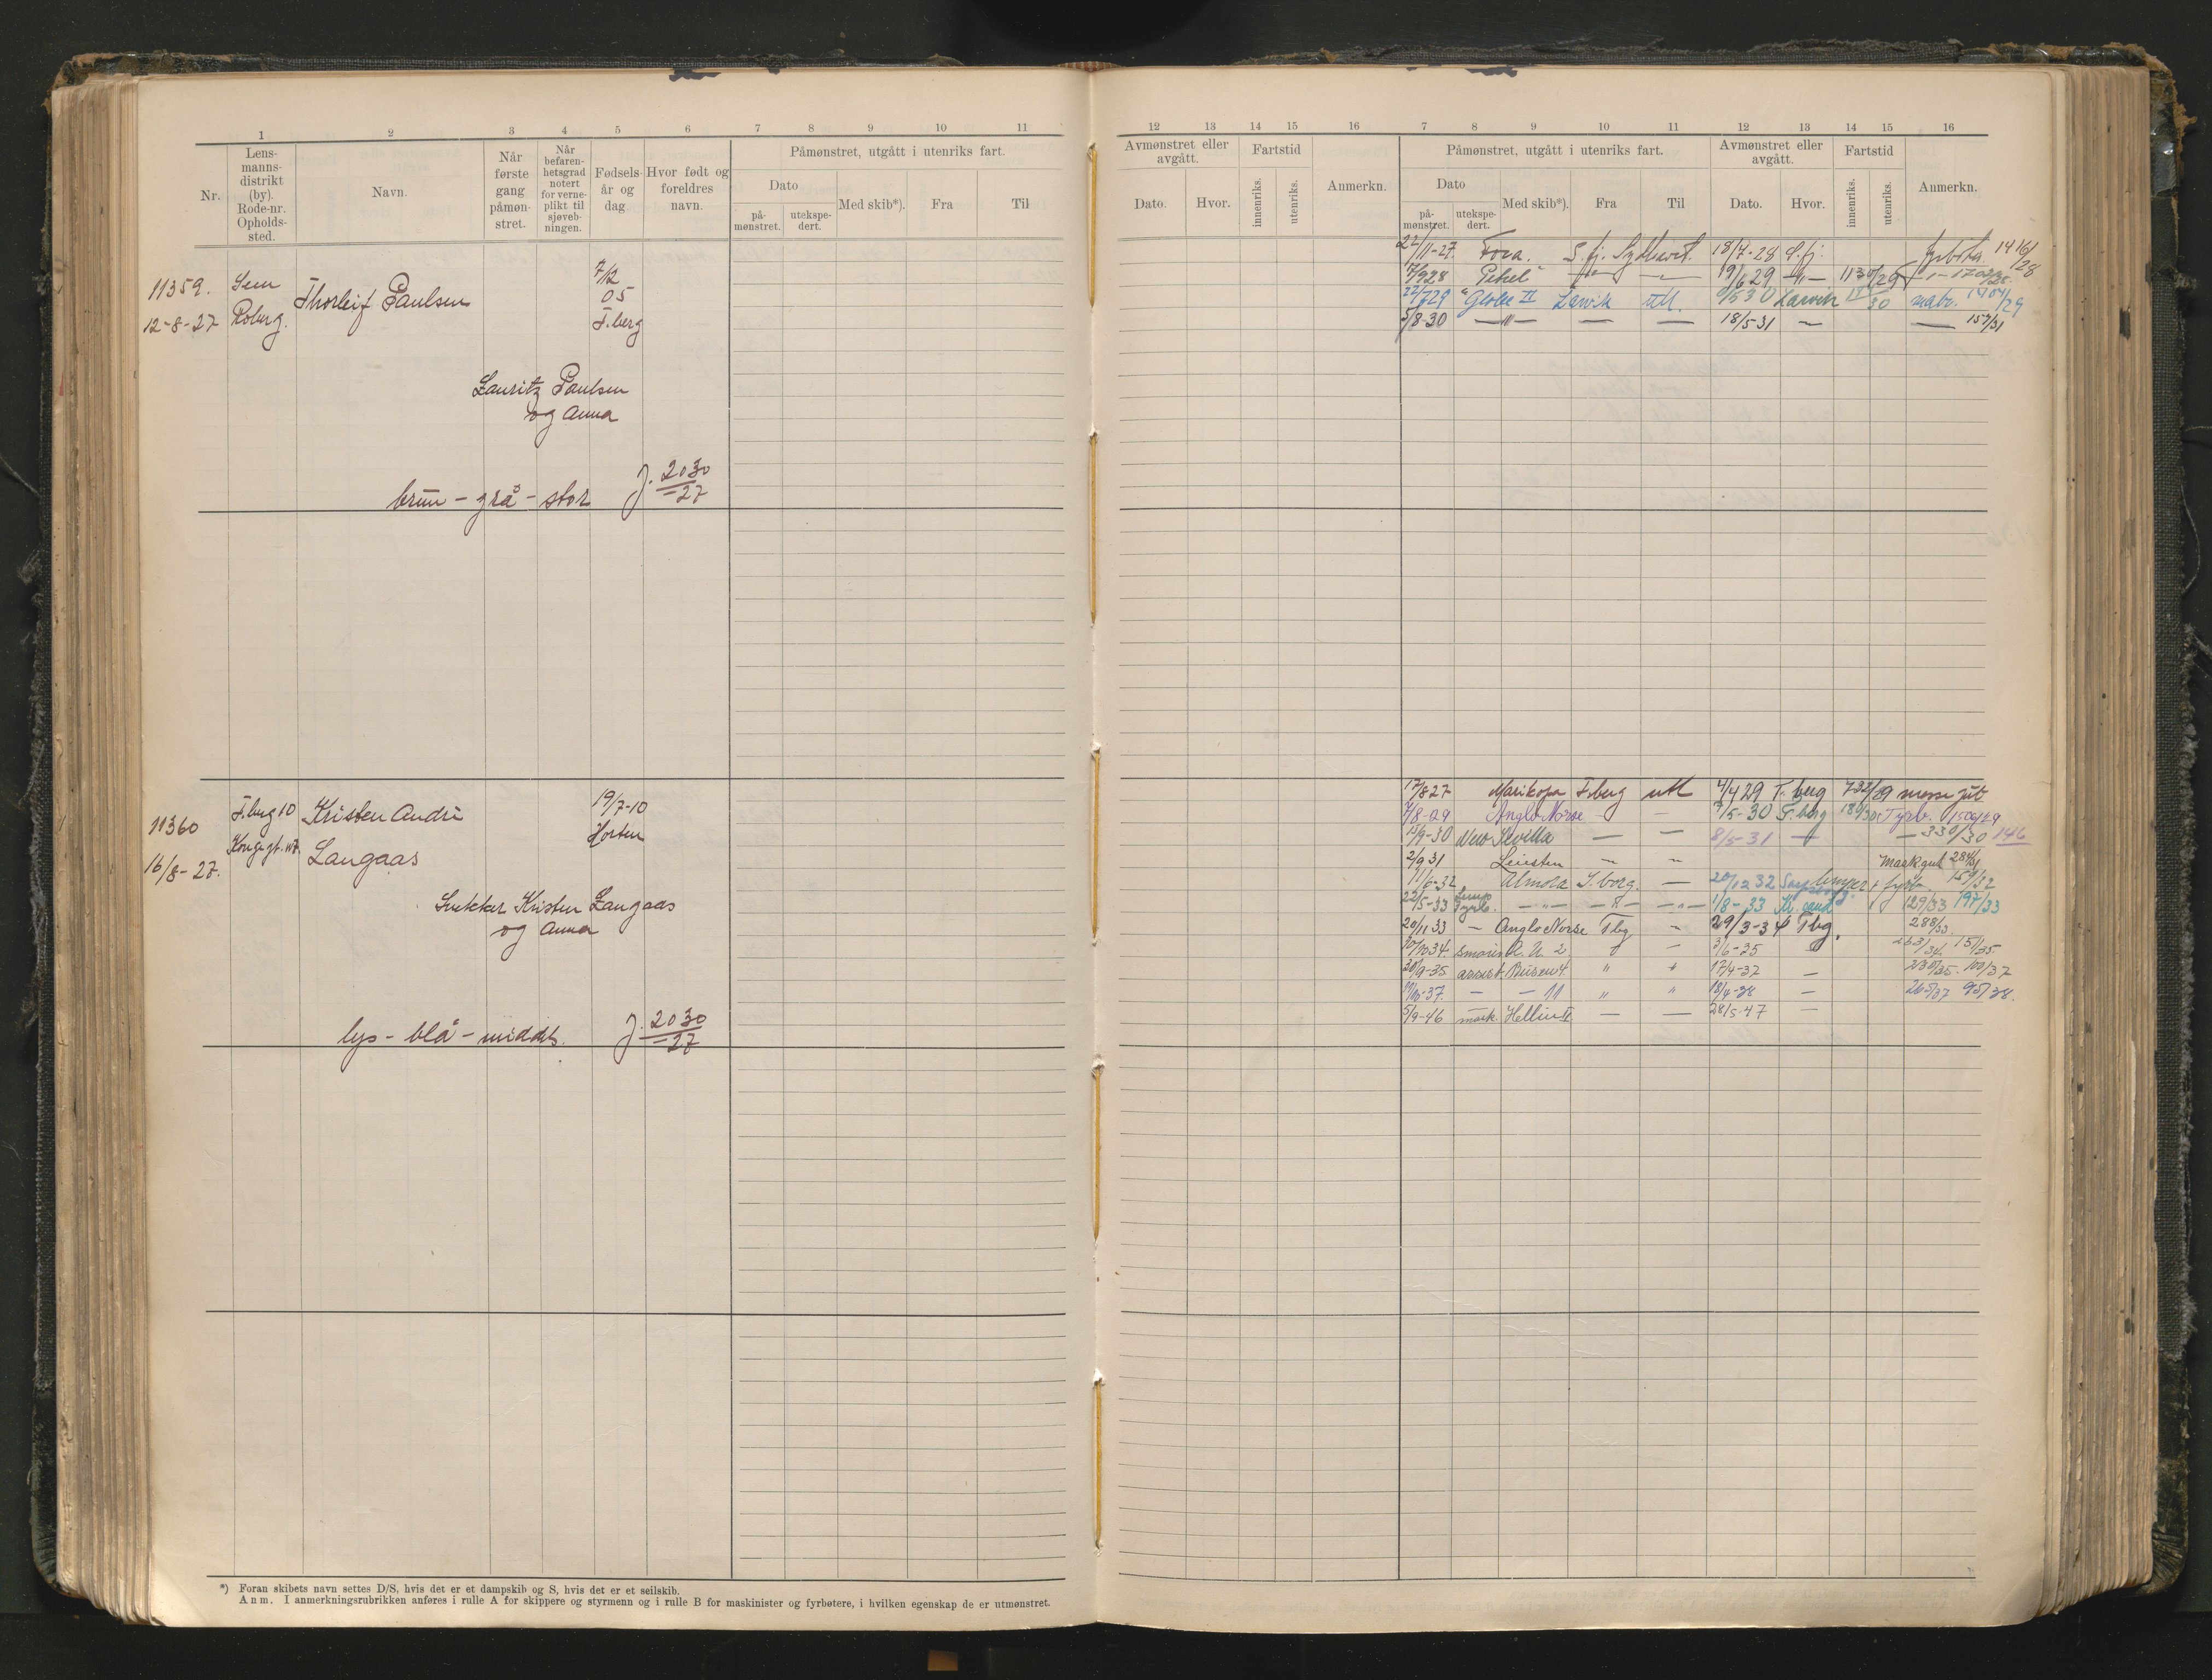 1 2 3 4 5 6 7 8 9 10 11
Nr.
Lens-
manns-
distrikt
(by).
Rode-nr.
Opholds-
sted.
Navn.
Når
første
gang
påmøn-
stret.
Når
befaren-
hetsgrad
notert
for verne-
plikt til
sjøveb-
ningen.
Fødsels-
år og
dag
Hvor født og
foreldres
navn.
Påmønstret, utgått i utenriks fart.
Dato
på-
mønstret.
utekspe-
dert.
Med skib*).
Fra
Til
11359. Sem Thorleif Paulsen 7/2
05
12-8-27 Roberg. T.berg
Lauritz Paulsen
og Anna
brun - grå - stor J. 2030
-27
11360 T.berg 10 Kristen Andri 19/7-10
Horten
16/8-27. Langaas
Kristen Langaas
og Anna
lys - blå - middels. J. 2030
-27
*) Foran skibets navn settes D/S, hvis det er et dampskib og S, hvis det er et seilskib.
Anm. I anmerkningsrubrikken anføres i rulle A for skippere og styrmenn og i rulle B for maskinister og fyrbøtere, i hvilken egenskap de er utmønstret.
12 13 14 15 16 7 8 9 10 11 12 13 14 15 16
Avmønstret eller
avgått.
Dato.
Hvor.
Fartstid
innenriks.
utenriks.
Anmerkn.
Påmønstret, utgått i utenriks fart.
Dato
på-
mønstret.
utekspe-
dert.
Med skib*).
Fra
Til
Avmønstret eller
avgått.
Dato.
Hvor.
Fartstid
innenriks.
utenriks.
Anmerkn.
22/11-27. S.fj. 18/4-28 S.fj. 1416/28
17/928 19/6 29 -"- 1130/29
22/729 "Globe II Larvik utl. Larvik 1904/29
5/8-30 -"- — — 18/5-31 — — 157/31
17/827 Marikopa T.berg utl 4/4 29 T.berg 732/29 messegut
7/8-29 Anglo Norse — — 9/5-30 T.berg 180/30 Fyrb. 1506/29
15/9-30 New Sevilla — — 8/5-31 — — 330/30 146
2/9 31 Leiesten — — 284/31
11/6-32 Almora S.borg. — 20/12 32 lemper & fyrb. 159/32
22/5-33 Fyrb. — " — — " — — " — 1/8-33 Kr.sand 129/33 197/33
20/11 33 — Anglo Norse Tbg — 29/3-34 Tbg. 288/33
— 3/6-35 263/34. 151/35
30/9-35 assist. Busen 4 " " 17/4-37 — 230/35. 100/37
— — 11 " " 18/4-38 — 265/37 95/38.
5/9-46 mask. Hellin II — — 28/5-47 —